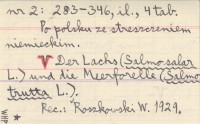 nr 2: 283-346, il., 4 tab.
Po polsku ze streszczeniem
niemieckim.
V Der Lachs (Salmo salar
L.) und die Meerforelle (Salmo
trutta L.).
Rec.: Roszkowski W. 1929.
WHP *